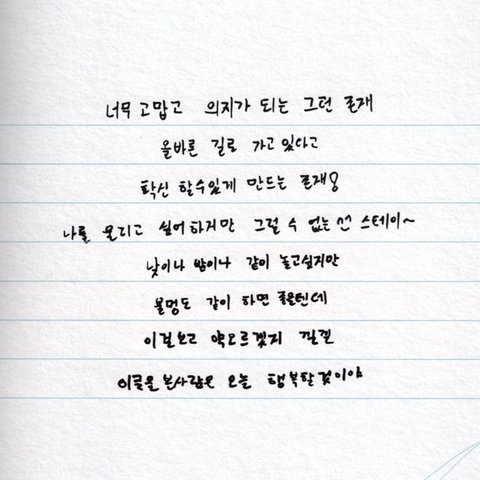 너무 고맙고 의지가 되는 그런 존재
올바른 길로 가고 있다고
확신 할수있게 만드는 존재?
나를 울리고 싶어하지만 그럴 수 없는 ^^ 스테이~
낮이나 밤이나 같이 놀고싶지만
불멍도 같이 하면 좋을텐데
이걸보고 약오르겠지 필릭
이글을본사람은 오늘 행복할것이야